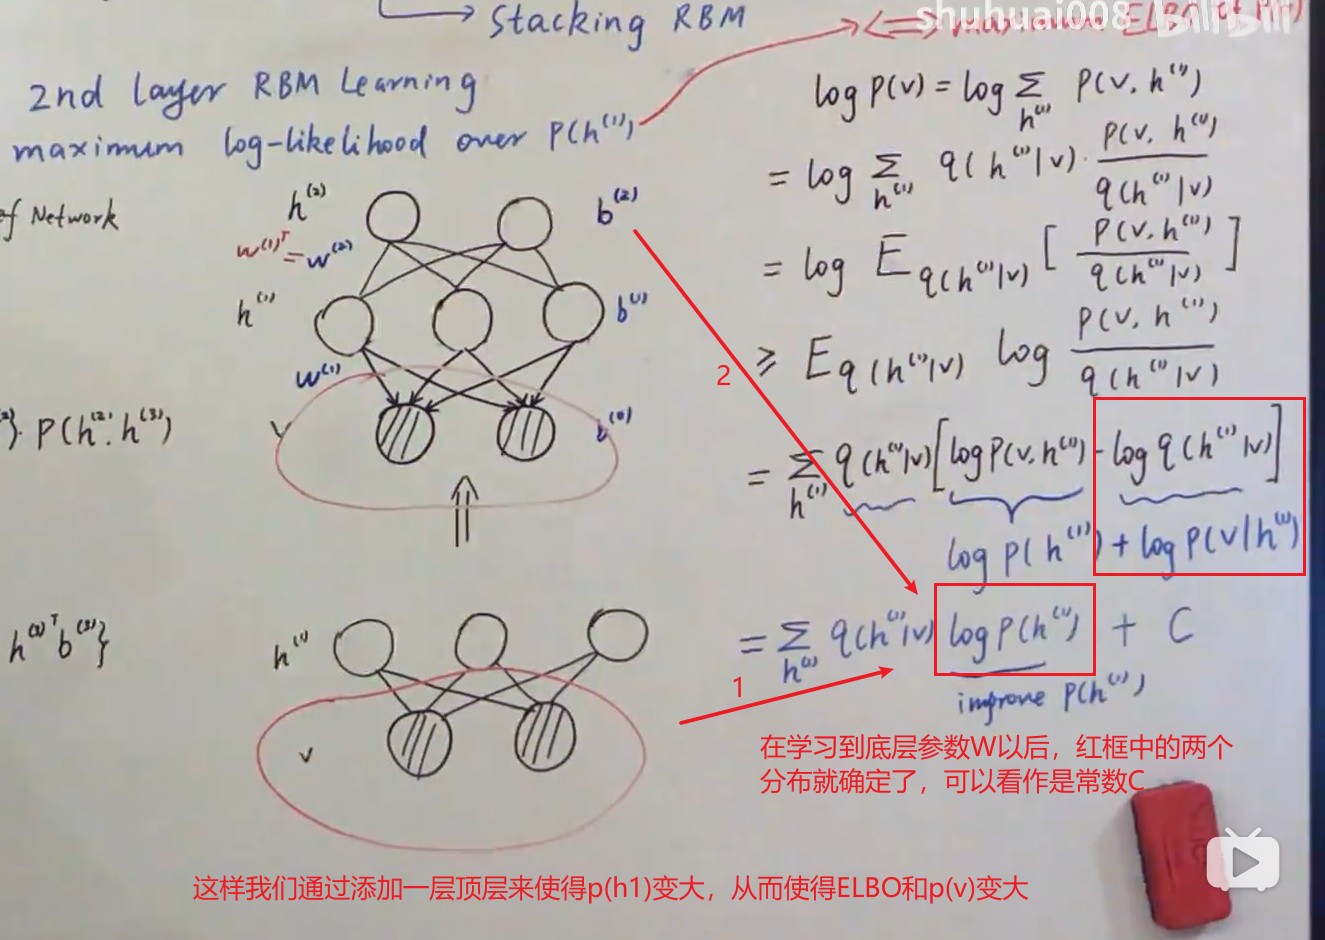 Stacking RBM
shuhuai008
⟺ maximum ELBO of
2nd layer RBM Learning
maximum log-likelihood over P(h⁽¹⁾)
of Network
h⁽²⁾
b⁽²⁾
w⁽¹⁾ᵀ = w⁽²⁾
h⁽¹⁾
b⁽¹⁾
w⁽¹⁾
v
b⁽⁰⁾
P(h⁽²⁾, h⁽³⁾)
h⁽³⁾ᵀ b⁽³⁾}
h⁽¹⁾
v
log P(v) = log Σ_h⁽¹⁾ P(v, h⁽¹⁾)
= log Σ_h⁽¹⁾ q(h⁽¹⁾|v) · P(v, h⁽¹⁾) / q(h⁽¹⁾|v)
= log E_q(h⁽¹⁾|v) [ P(v, h⁽¹⁾) / q(h⁽¹⁾|v) ]
≥ E_q(h⁽¹⁾|v) log P(v, h⁽¹⁾) / q(h⁽¹⁾|v)
2
= Σ_h⁽¹⁾ q(h⁽¹⁾|v) [log P(v, h⁽¹⁾) - log q(h⁽¹⁾|v)]
log P(h⁽¹⁾) + log P(v|h⁽¹⁾)
= Σ_h⁽¹⁾ q(h⁽¹⁾|v) log P(h⁽¹⁾) + C
1
improve P(h⁽¹⁾)
在学习到底层参数W以后，红框中的两个
分布就确定了，可以看作是常数C
这样我们通过添加一层顶层来使得p(h1)变大，从而使得ELBO和p(v)变大